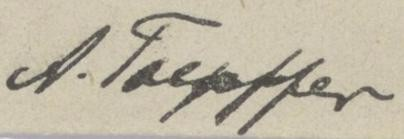 A. Toepffer